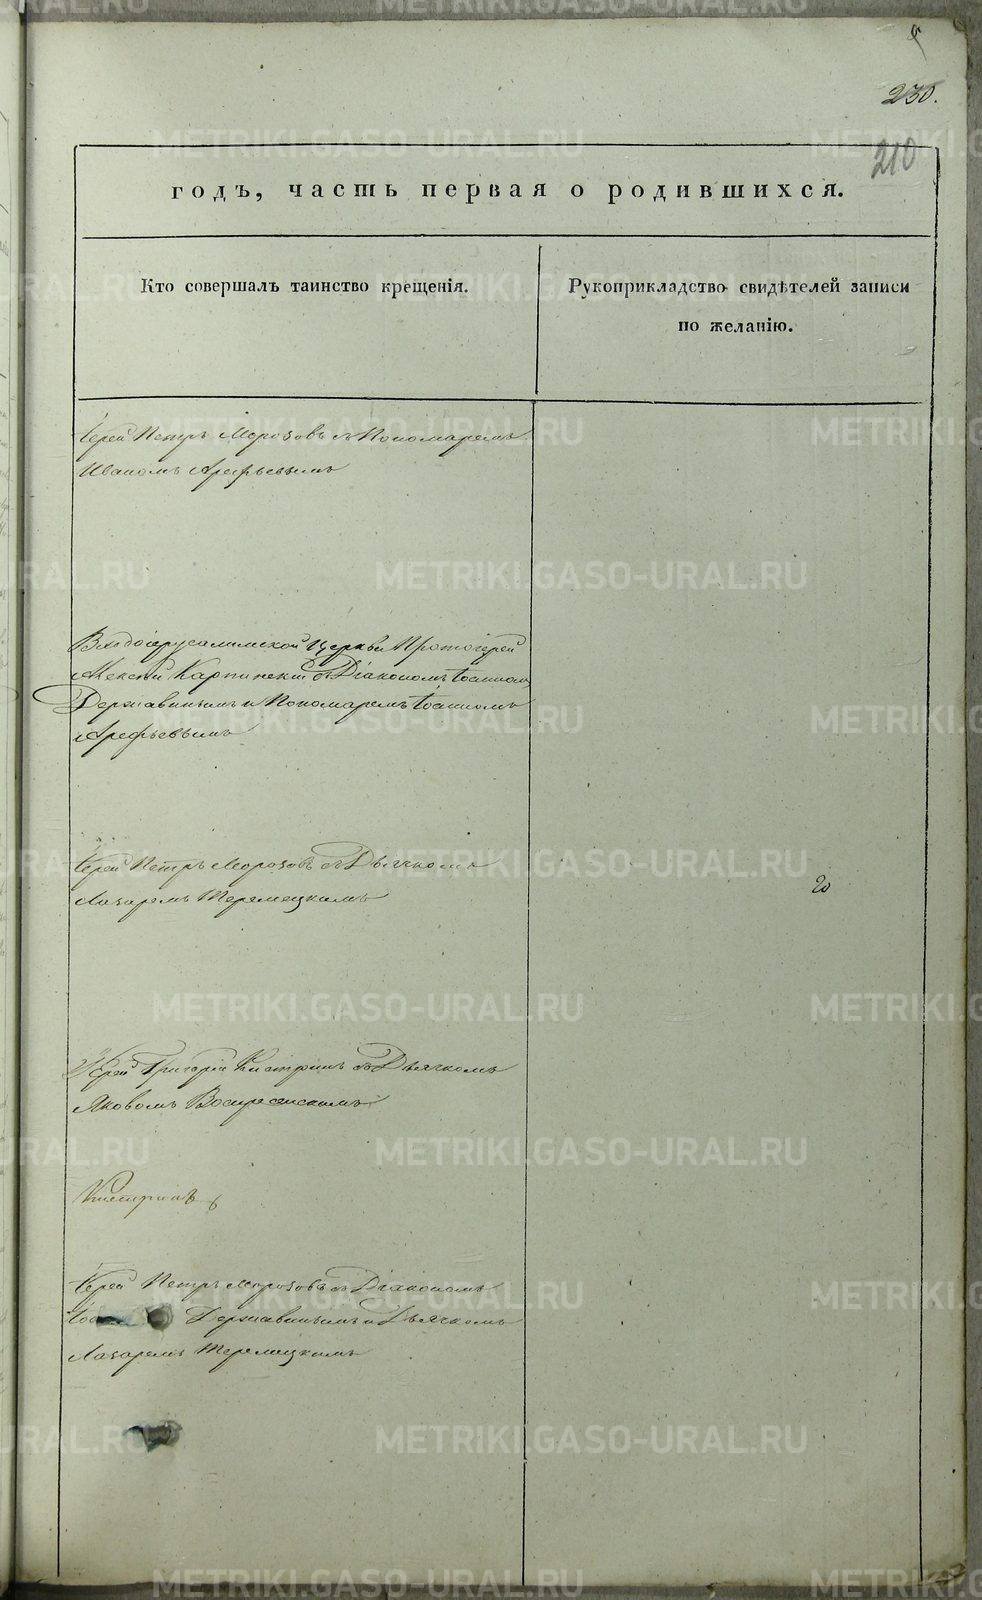 230.
210
годъ, часть первая о родившихся.
Кто совершалъ таинство крещенія.
Рукоприкладство свидѣтелей записи
по желанію.
Іерей Петръ Морозовъ съ Пономаремъ
Иваномъ Арефьевымъ
Входоіерусалимской Церкви Протоіерей
Алексѣй Карпинскій съ Діакономъ Іоанномъ
Державинымъ и Пономаремъ Іоанномъ
Арефьевымъ
Іерей Петръ Морозовъ съ Дьячкомъ
Лазаремъ Теремецкимъ
Іерей Григорій Кистринъ съ Дьячкомъ
Яковомъ Воскресенскимъ
Кистринъ
Іерей Петръ Морозовъ съ Діакономъ
Державинымъ и Дьячкомъ
Лазаремъ Теремецкимъ
METRIKI.GASO-URAL.RU